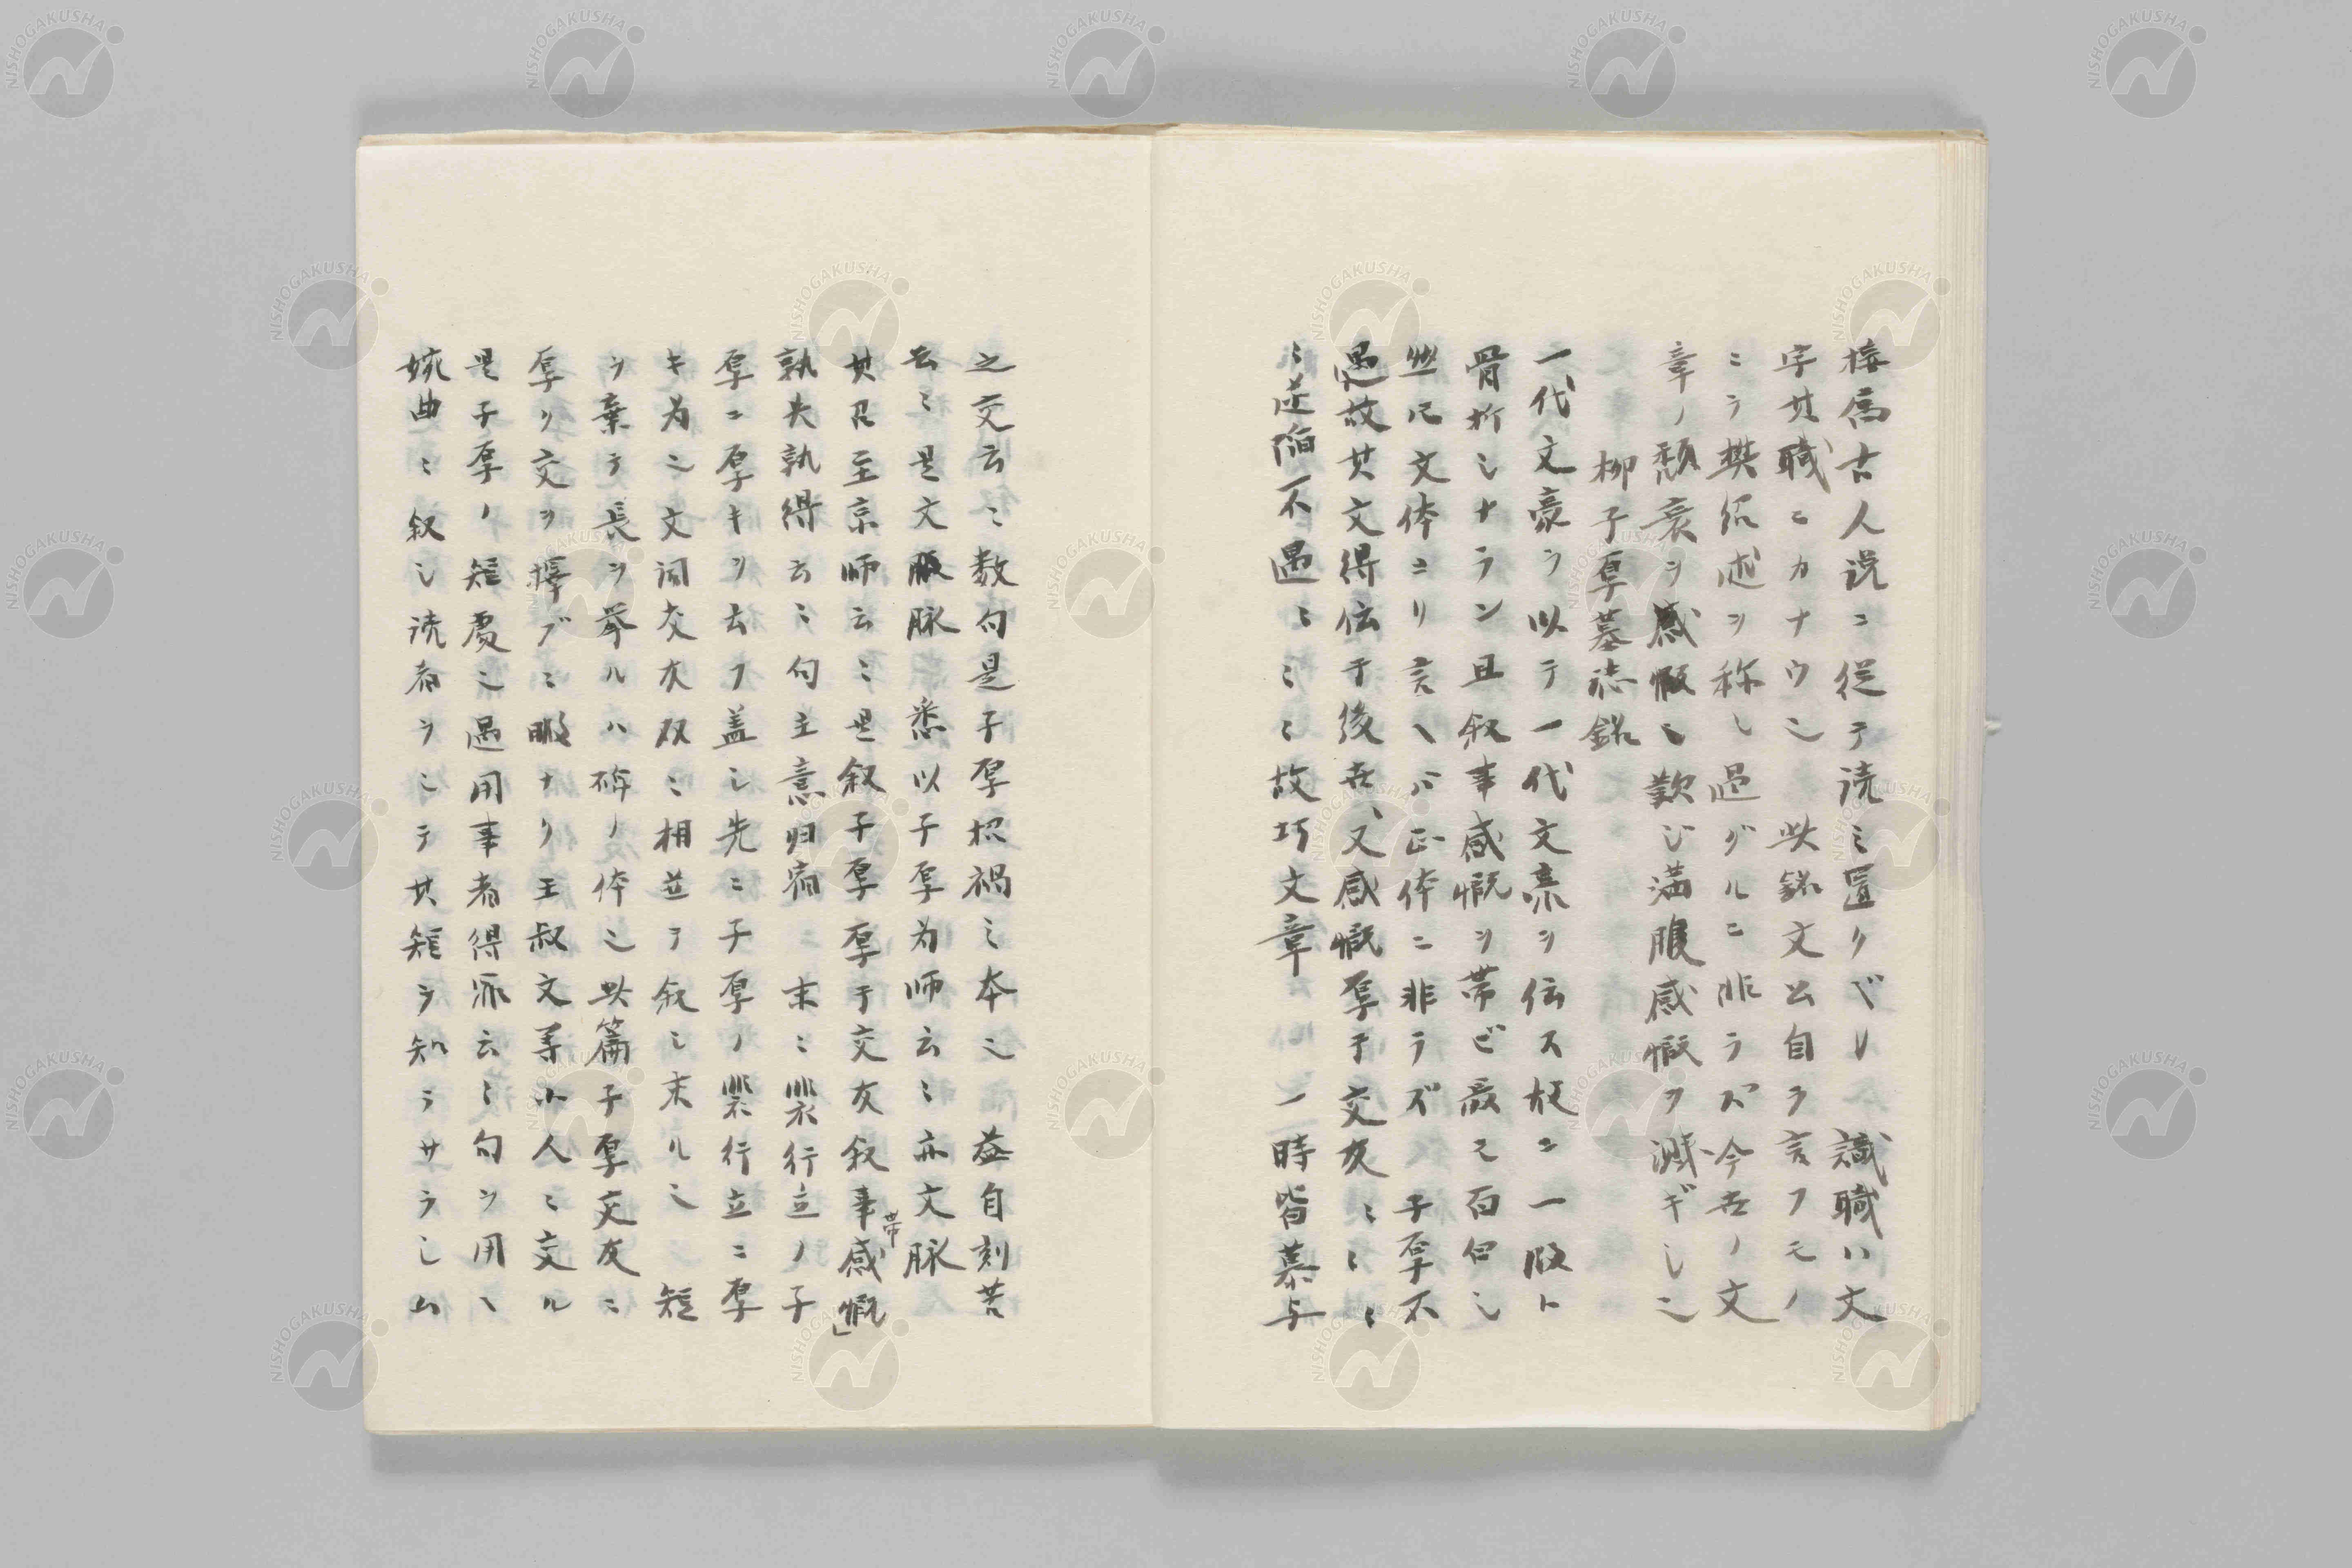 接為古人説ニ従テ読ミ置クベシ 識職ハ文
字其職ニカナウ也 此銘文公自ラ言フモノ
ニテ樊紹述ヲ称シ過グルニ非ラズ今世ノ文
章ノ頽衰ヲ感慨シ歎ジ満腹感慨ヲ濺ギシ也
柳子厚墓誌銘
一代文豪ヲ以テ一代文豪ヲ伝ス故ニ一段ト
骨折シナラン且叙事感慨ヲ帯ビ最モ面白シ
然ドモ文体ヨリ言ヘバ正体ニ非ラズ 子厚不
遇故其文得伝于後世、又感慨厚于交友ミミミ
ミ逆陥不遇ミミミ故巧文章 一時皆慕与
之交云ミ数句是子厚招禍ミ本也 益自刻苦
云ミ是文脈 悉以子厚為師云ミ亦文脈
其召至京師云ミ是叙子厚厚于交友叙事帯感慨」
孰失孰得云ミ句主意帰宿 末ミ裴行立ノ子
厚ニ厚キヲ去フ蓋シ先ニ子厚ノ裴行立ニ厚
キ為ニ文間交友双ミ相並テ叙シ末ル也 短
ヲ棄テ長ヲ挙ルハ碑ノ体也此篇子厚交友ニ
厚ク交ヲ擇ブニ暇ナク王叔文等小人ミ交ル
是子厚ノ短処也遇用事者得罪云ミ句ヲ用ヘ
婉曲ミ叙シ読者ヲシテ其短ヲ知ラサラシム